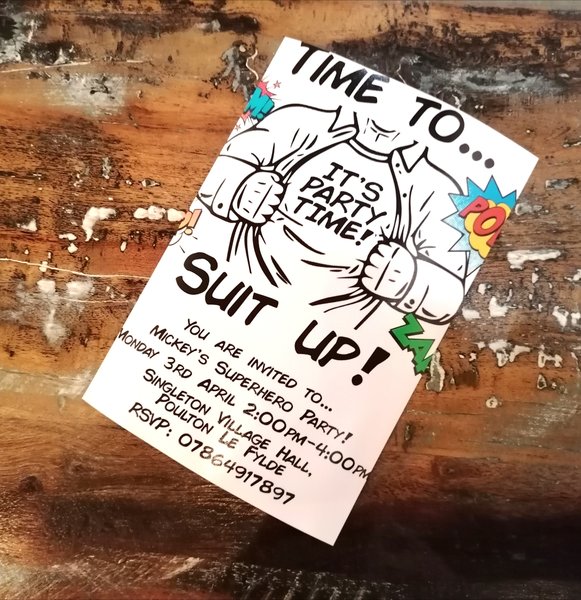 TIME TO...
IT'S
PARTY
TIME!
SUIT UP!
YOU ARE INVITED TO...
MICKEY'S SUPERHERO PARTY!
MONDAY 3RD APRIL 2:00PM-4:00PM
SINGLETON VILLAGE HALL,
POULTON LE FYLDE
RSVP: 07864917897